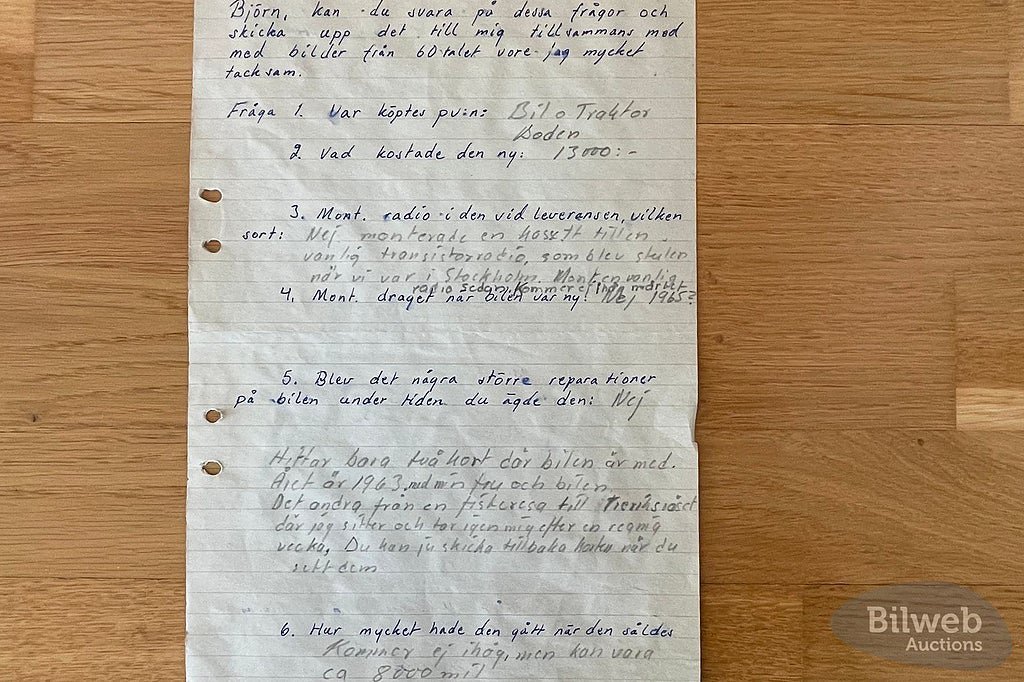 Björn, kan du svara på dessa frågor och
skicka upp det till mig tillsammans med
med bilder från 60-talet vore jag mycket
tacksam.
Fråga 1. Var köptes pv:n: Bil o Traktor
Boden
2. Vad kostade den ny: 13000:-
3. Mont. radio i den vid leveransen, vilken
sort: Nej monterade en kasett till en
vanlig transistorradio, som blev stulen
när vi var i Stockholm. Monten vanlig
radio sedan. Kommer ej ihåg märket
4. Mont. draget när bilen var ny: Nej 1965?
5. Blev det några större reparationer
på bilen under tiden du ägde den: Nej
Hittar bara två kort där bilen är med.
Året är 1963, med min fru och bilen.
Det andra från en fiskeresa till Treriksröset
där jag sitter och tar igen mig efter en regnig
vecka. Du kan ju skicka tillbaka när du
sett dem
6. Hur mycket hade den gått när den såldes
Kommer ej ihåg, men kan vara
ca 8000 mil
Bilweb
Auctions